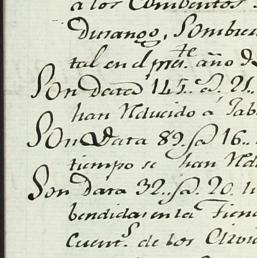 a los Combentos
Durango, Sombre
tal en el pres.te año d
Son Data 145.. @. 21..
han Reducido à Jab
Son Data 89. @ 16..
tiempo se han Red
Son Data 32. @. 20. l
bendidas en la Tiend
Cuent.s de los Olivi